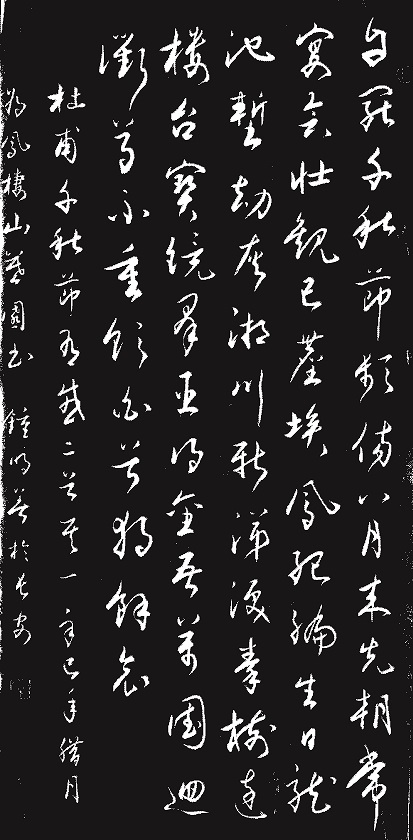 自罷千秋節頻傷八月来先朝常
宴會壮觀已塵埃鳳紀編生日龍
池塹劫灰湘川新涕淚秦樹遠
楼台寶鏡群臣得金吾萬國迴
衢尊不重飲白首獨餘哀
杜甫千秋節有感二首其一辛巳年臘月
为鳳棲山墓園书 鍾明善於长安